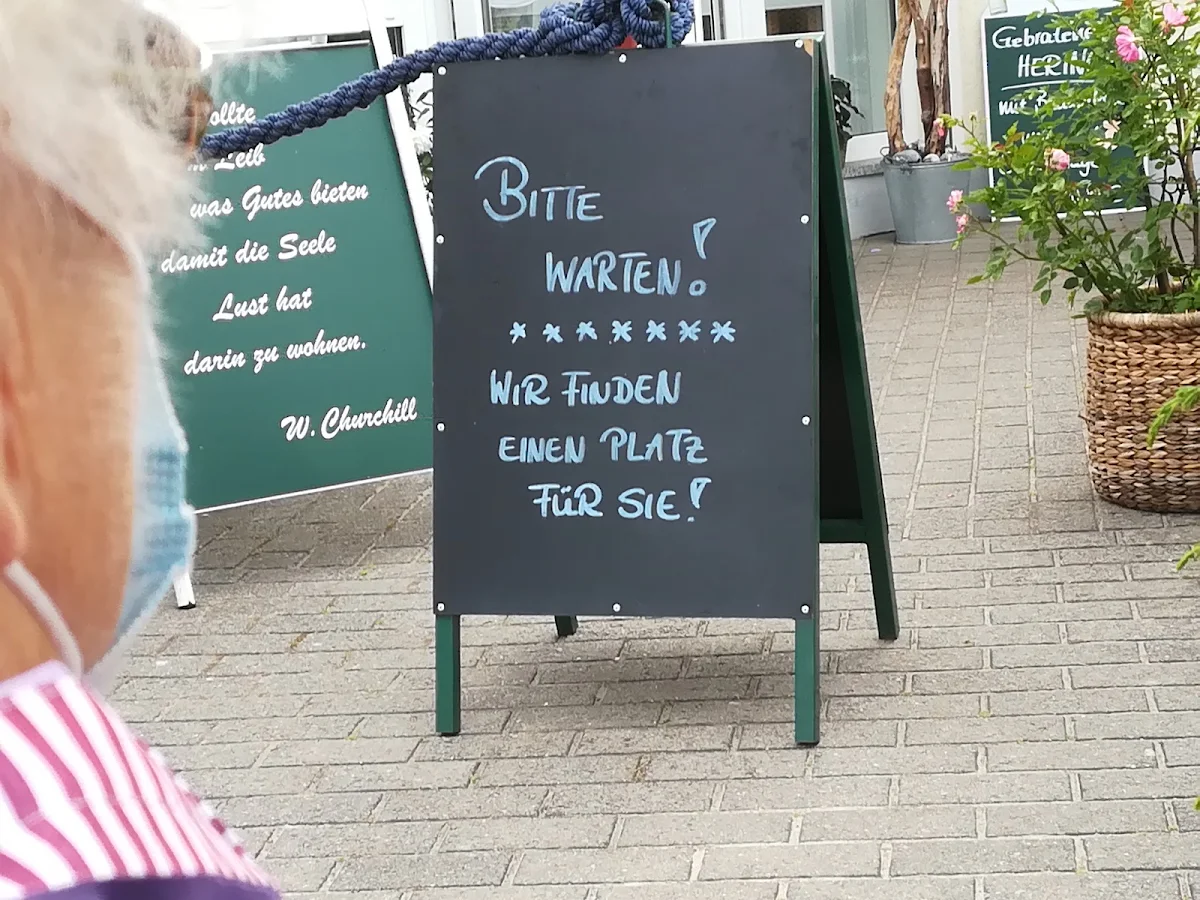 Leib
was Gutes bieten
damit die Seele
Lust hat
darin zu wohnen.
W. Churchill
BITTE
WARTEN!
*******
WIR FINDEN
EINEN PLATZ
FÜR SIE!
Gebratene
HERIN
mit